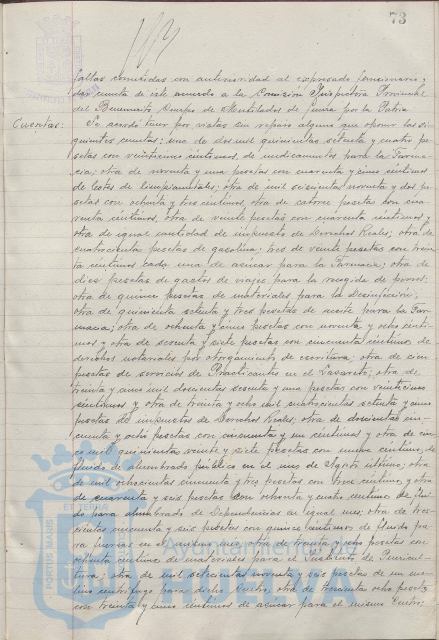 73
faltas cometidas con anterioridad al expresado funcionario;
dar cuenta de este acuerdo a la Comisión Inspectora Provincial
del Benemérito Cuerpo de Mutilados de Guerra por la Patria
Cuentas:
Se acordó tener por vistas sin reparo alguno que oponer las si-
guientes cuentas: una de dos mil quinientas setenta y cuatro pe-
setas con veinticinco céntimos, de medicamentos para la Farma-
cia; otra de noventa y una pesetas con cuarenta y cinco céntimos
de Gotas de; otra de mil seiscientas noventa y dos pe-
setas con ochenta y tres céntimos, otra de catorce pesetas con cua-
renta céntimos, otra de veinte pesetas con cuarenta céntimos y
otra de igual cantidad de impuesto de Derechos Reales; otra de
cuatrocientas pesetas de gasolina; tres de veinte pesetas con trein-
ta céntimos cada una de azúcar para la Farmacia; otra de
diez pesetas de gastos de viajes para la recogida de perros;
otra de quince pesetas de materiales para la desinfección;
otra de quinientas setenta y tres pesetas de aceite para la Far-
macia; otra de ochenta y cinco pesetas con noventa y ocho cénti-
mos y otra de sesenta y siete pesetas con cincuenta céntimos de
derechos notariales por otorgamiento de escritura; otra de cien
pesetas de servicios de Practicantes en el Lazareto; otra de
treinta y cinco mil doscientas sesenta y una pesetas con veinticinco
céntimos y otra de treinta y ocho mil cuatrocientas setenta y cinco
pesetas de impuestos de Derechos Reales; otra de doscientas cin-
cuenta y ocho pesetas con cincuenta y un céntimos y otra de cin-
co mil quinientas veinte y siete pesetas con nueve céntimos, de
fluido de alumbrado público en el mes de Agosto último; otra
de mil ochocientas cincuenta y tres pesetas con trece céntimos, y otra
de cuarenta y seis pesetas con ochenta y cuatro céntimos de flui-
do para alumbrado de Dependencias en igual mes; otra de tres-
cientas cincuenta y seis pesetas con quince céntimos de fluido pa-
ra en el mismo mes; otra de treinta y ocho pesetas con
ochenta céntimos de materiales para el Instituto de Puericul-
tura, otra de mil setecientas noventa y seis pesetas de un
para dicho Centro, otra de trescientas ocho pesetas
con treinta y cinco céntimos de azúcar para el mismo Centro;
PORTUS MAHIS
ET TERRIA
Ayuntamiento